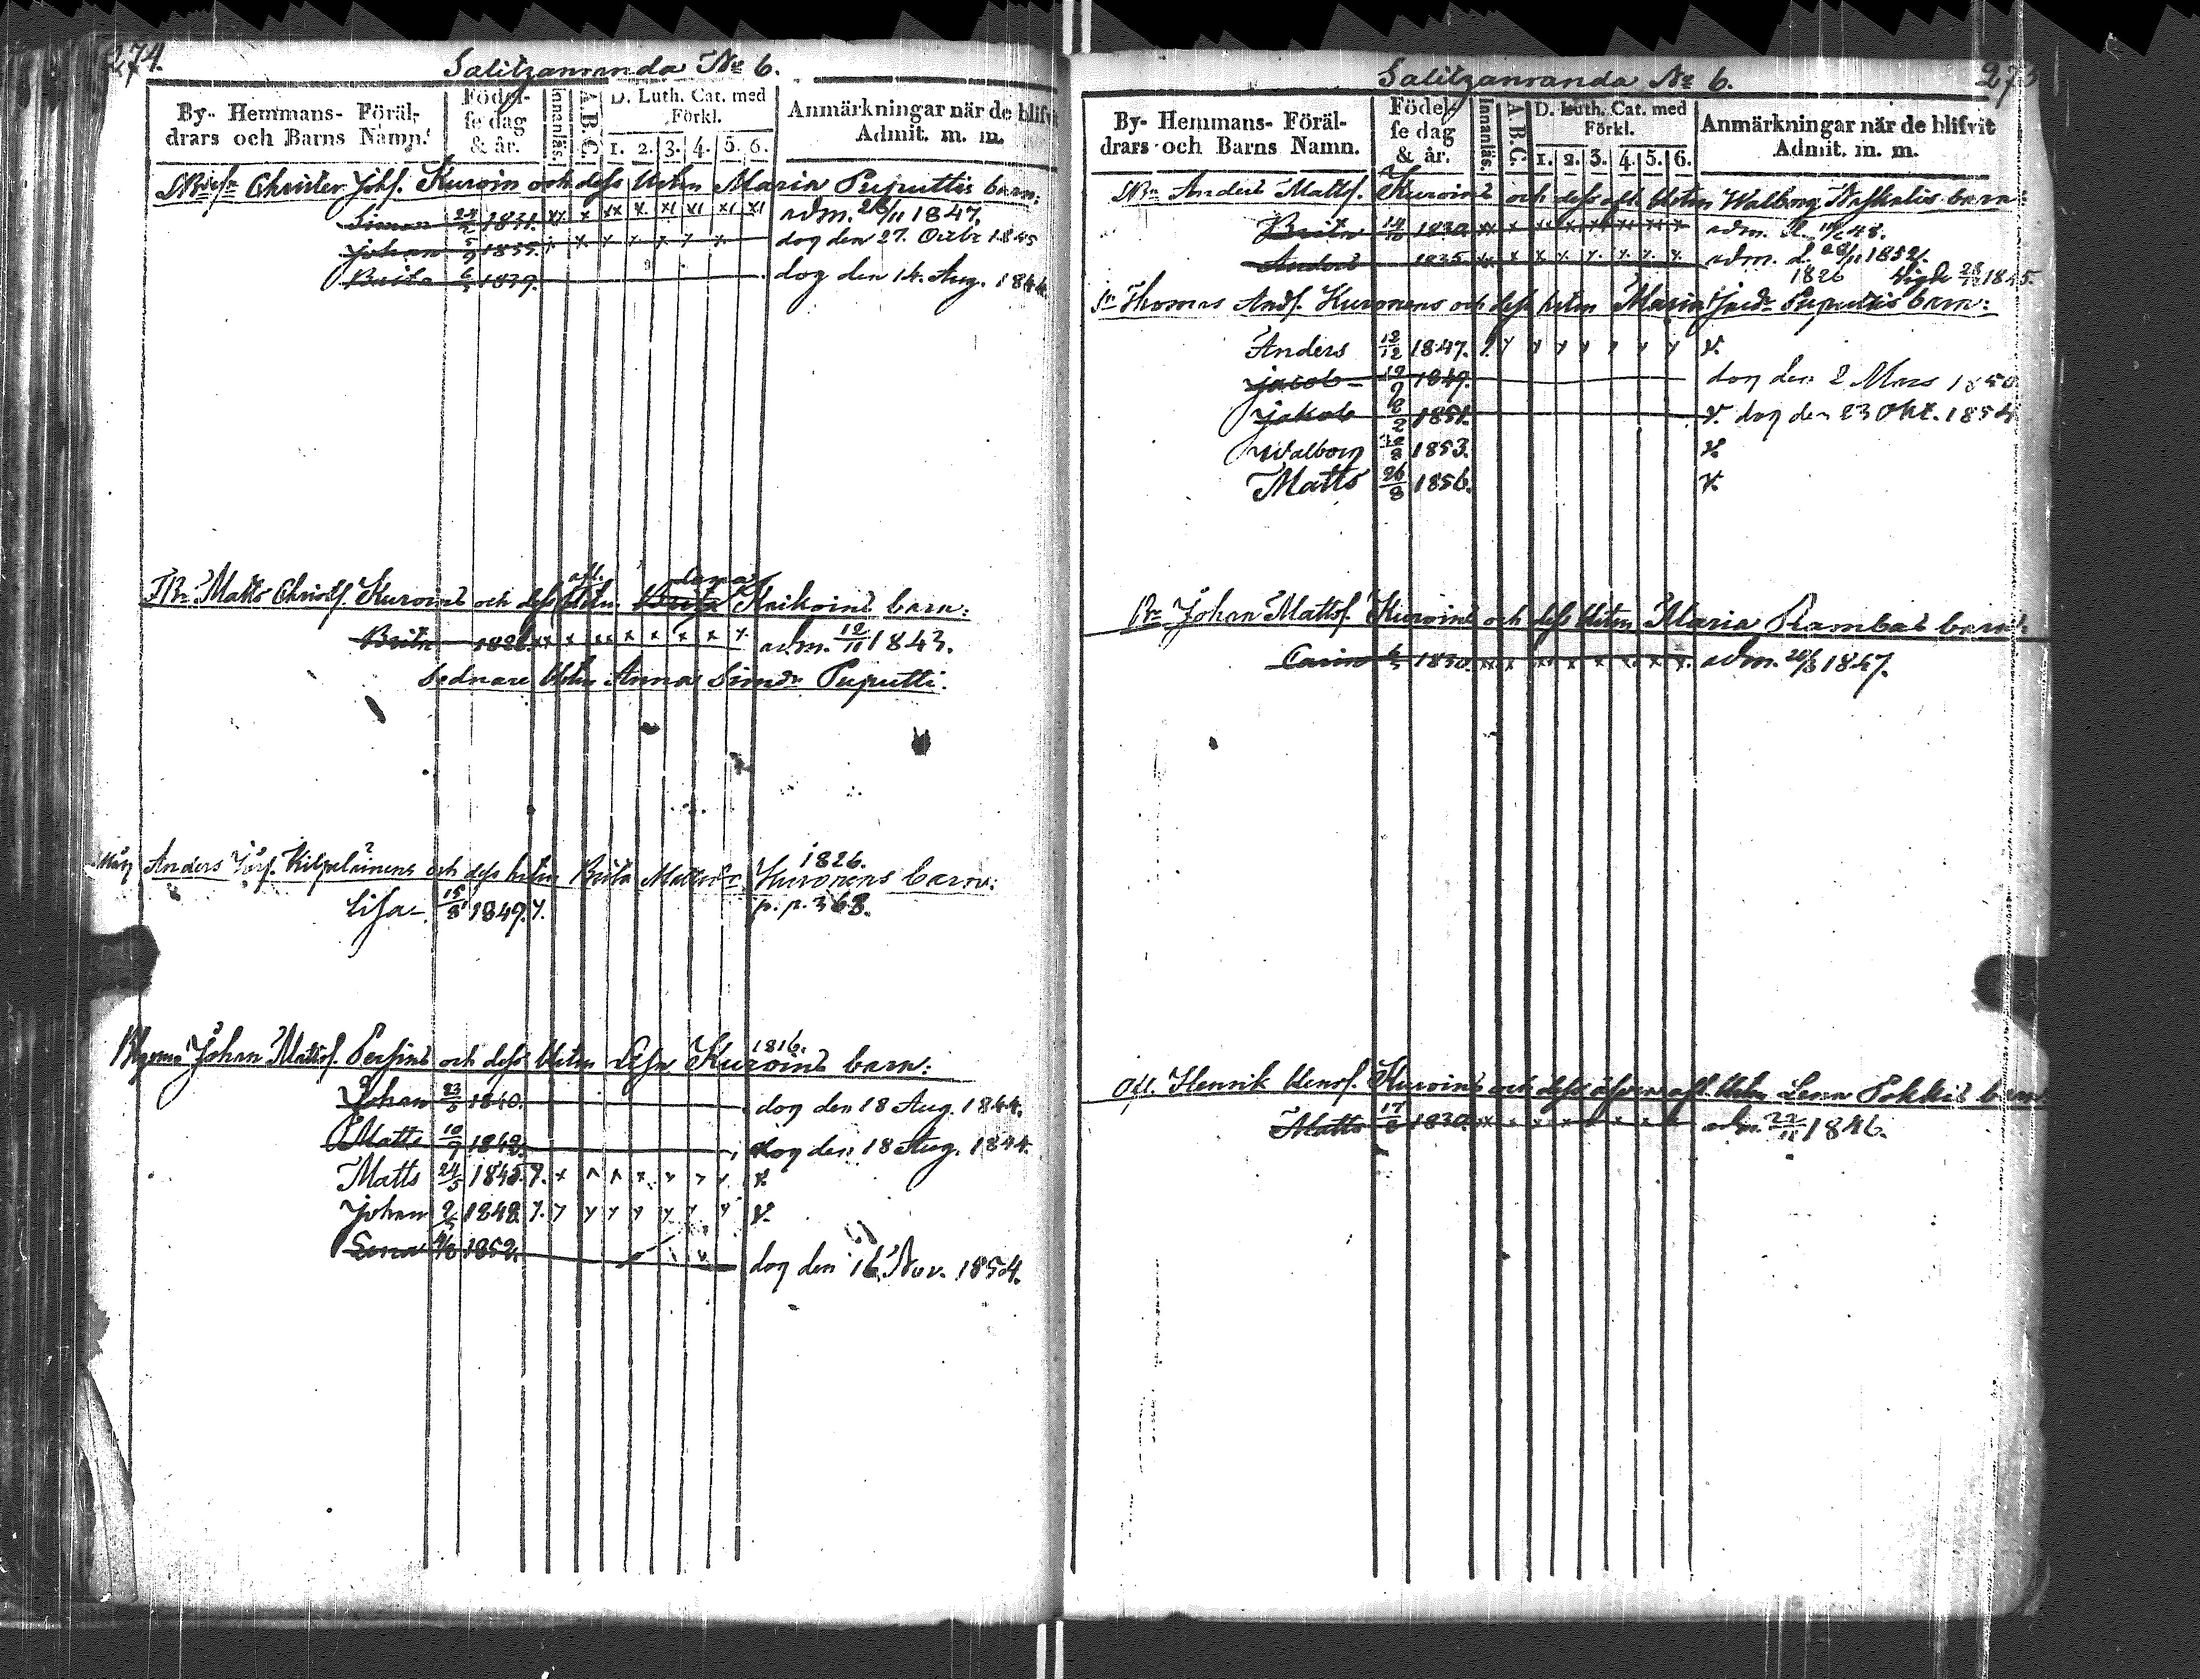 274.
Salitzanranda No 6.
By- Hemmans- Föräl-
drars och Barns Namn.
Födel-
se dag
& år.
Innanläs.
A.B.C.
D. Luth. Cat. med
Förkl.
1. 2. 3. 4. 5. 6.
Anmärkningar när de blifvit
Admit. m. m.
Christer Johs. Kuroin och dess Hstn Maria Puputtis barn:
Simon 1831. adm. 1847.
Johan 5/9 1835. dog den 27. Octbr 1845
Brita 6/ 1839. dog den 14. Aug. 1844
Matts Christs. Kuroins och dess afl. Hstn Kaikoins barn:
Brita 1826. adm. 12/11 1843.
Sednare Hstn Anna Simsdr Puputti.
1826.
Anders Kilpeläinens och dess hstn Brita Mattsdr Kuronens barn:
Lisa 15/8 1849. p. p. 368.
1816.
Johan Mattss. Persins och dess Hstn Lisa Kuroins barn:
Johan 23/5 1840. dog den 18 Aug. 1844.
Matts 10/9 1842. dog den 18 Aug. 1844.
Matts 24/5 1845.
Johan 1848.
Lena 1852. dog den 16 Nov. 1854.
Salitzanranda No 6. 275
By- Hemmans- Föräl-
drars och Barns Namn.
Födel-
se dag
& år.
Innanläs.
A.B.C.
D. Luth. Cat. med
Förkl.
1. 2. 3. 4. 5. 6.
Anmärkningar när de blifvit
Admit. m. m.
Anders Mattss. Kuroins och dess afl. Hstn Walborg barn:
Brita 14/10 1830 adm. d. 48.
Anders 1835. adm. d. 28/11 1852.
1826 1845.
Thomas Ands. Kuronens och dess hstn Maria Puputtis barn:
Anders 12/12 1847.
Jacob 1849. dog den 2 Mars 1850
Jakob 1851. dog den 23 Okt. 1854
Walborg 1853.
Matts 26/8 1856.
Johan Mattss. Kuroins och dess Hstn Maria Rambas barn:
Carin 1830. adm. 1847.
Henrik Henrs. Kuroins och dess afl. Hstn Lena Pokkis barn
Matts 17/8 1830. adm. 22/11 1846.